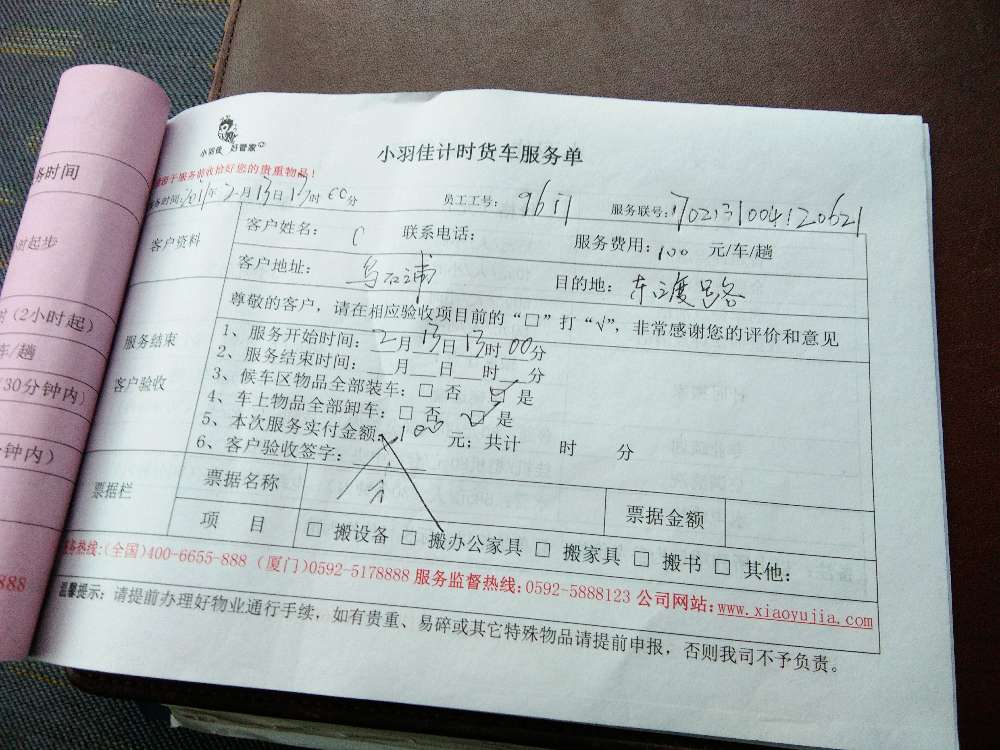 小羽佳 好管家
小羽佳计时货车服务单
于服务前收拾好您的贵重物品！
务时间：2017年2月13日13时00分 员工工号：9611 服务联号：
客户资料 客户姓名： 联系电话： 服务费用：100 元/车/趟
客户地址：乌石浦 目的地：东渡路
尊敬的客户，请在相应验收项目前的“□”打“√”，非常感谢您的评价和意见
服务结束
客户验收
1、服务开始时间：2月13日13时00分
2、服务结束时间：__月__日__时__分
3、候车区物品全部装车：□ 否 □ 是
4、车上物品全部卸车：□ 否 □ 是
5、本次服务实付金额：100元；共计 时 分
6、客户验收签字：
票据栏 票据名称 票据金额
项 目 □ 搬设备 □ 搬办公家具 □ 搬家具 □ 搬书 □ 其他：
服务热线：(全国)400-6655-888 (厦门)0592-5178888 服务监督热线：0592-5888123 公司网站：www.xiaoyujia.com
温馨提示：请提前办理好物业通行手续，如有贵重、易碎或其它特殊物品请提前申报，否则我司不予负责。
务时间
时起步
(2小时起)
车/趟
(30分钟内)
分钟内)
888